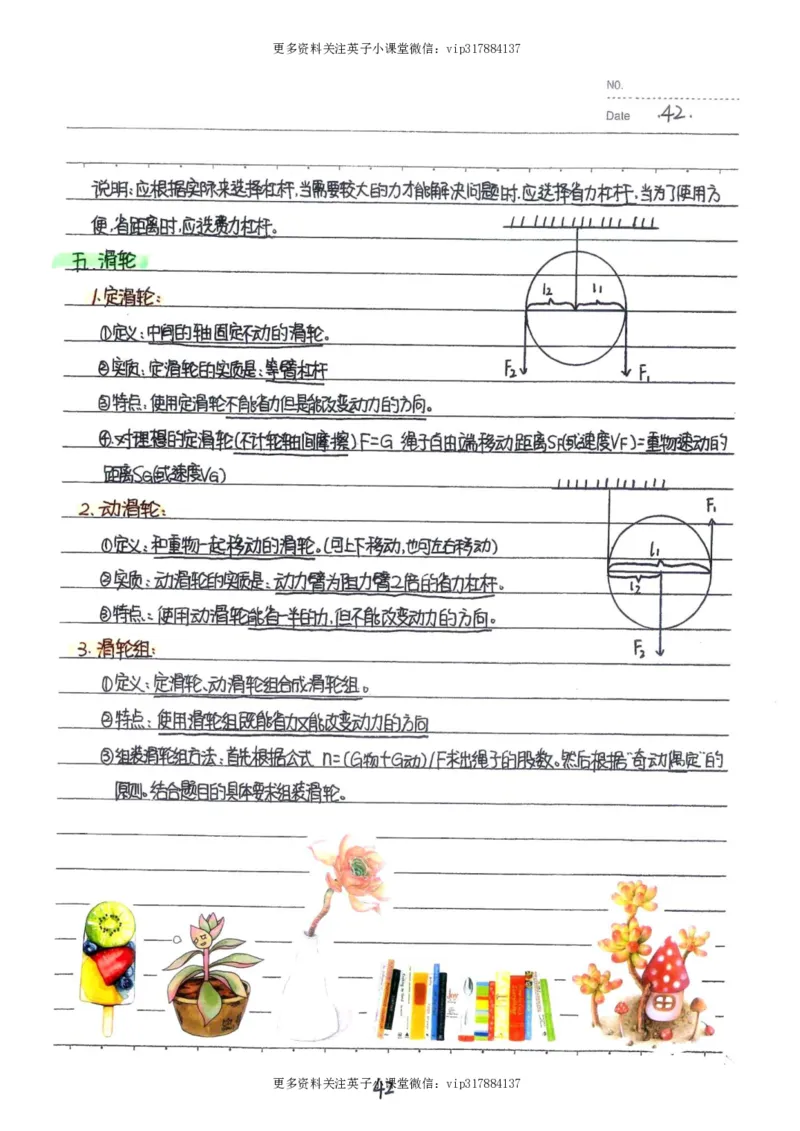 更多资料关注英子小课堂微信：vip317884137
NO.
Date .42.
说明：应根据实际来选择杠杆，当需要较大的力才能解决问题时，应选择省力杠杆，当为了使用方
便，省距离时，应选费力杠杆。
五.滑轮
1.定滑轮：
①定义：中间的轴固定不动的滑轮。
②实质：定滑轮的实质是：等臂杠杆
③特点：使用定滑轮不能省力但是能改变动力的方向。
④.对理想的定滑轮(不计轮轴间摩擦)F=G 绳子自由端移动距离SF(或速度VF)=重物移动的
距离SG(或速度VG)
l2 l1
F2 F1
2.动滑轮：
①定义：和重物一起移动的滑轮。(可上下移动，也可左右移动)
②实质：动滑轮的实质是：动力臂为阻力臂2倍的省力杠杆。
③特点：使用动滑轮能省一半的力，但不能改变动力的方向。
F1
l1
l2
F2
3.滑轮组：
①定义：定滑轮、动滑轮组合成滑轮组。
②特点：使用滑轮组既能省力又能改变动力的方向
③组装滑轮组方法：首先根据公式 n=(G物+G动)/F求出绳子的股数。然后根据"奇动偶定"的
原则。结合题目的具体要求组装滑轮。
更多资料关注英子小课堂微信：vip317884137
42